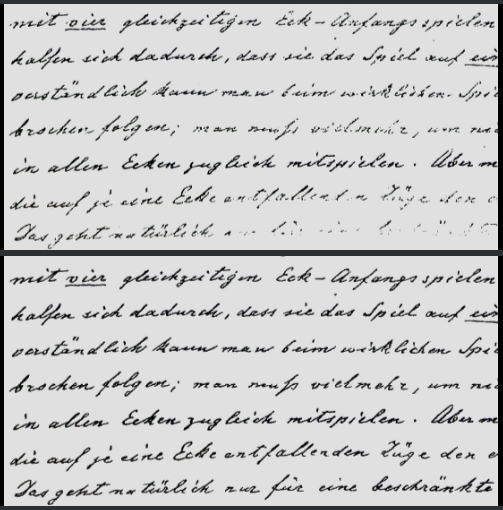 mit vier gleichzeitigen Eck-Anfangsspielen
halfen sich dadurch, dass sie das Spiel auf
verständlich kann man beim wirklichen
brochen folgen; man muß vielmehr, um
in allen Ecken zugleich mitspielen. Aber
die auf je eine Ecke entfallenden Züge den
Das geht natürlich
mit vier gleichzeitigen Eck-Anfangsspielen
halfen sich dadurch, dass sie das Spiel auf
verständlich kann man beim wirklichen
brochen folgen; man muß vielmehr, um
in allen Ecken zugleich mitspielen. Aber
die auf je eine Ecke entfallenden Züge den
Das geht natürlich nur für eine beschränkte